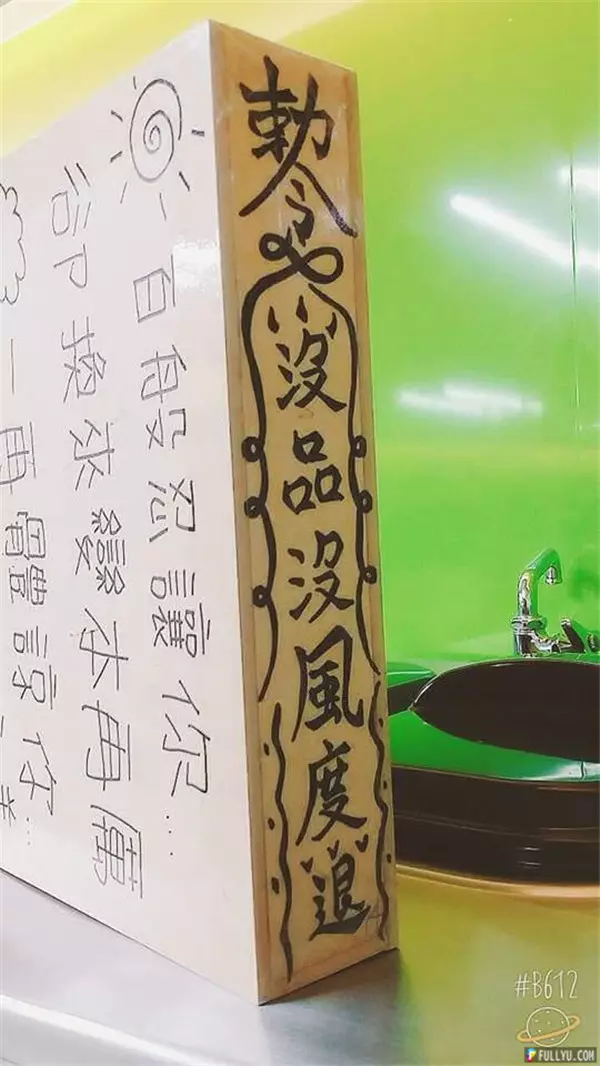 勅令
沒品沒風度退
百般忍讓你...
卻換來變本再厲
一再體諒你...
#B612
FULLYU.COM